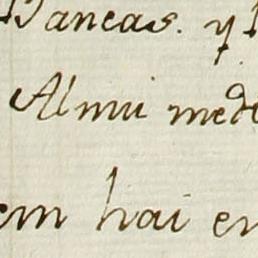 Dancas. y
Almui medo
em hai en